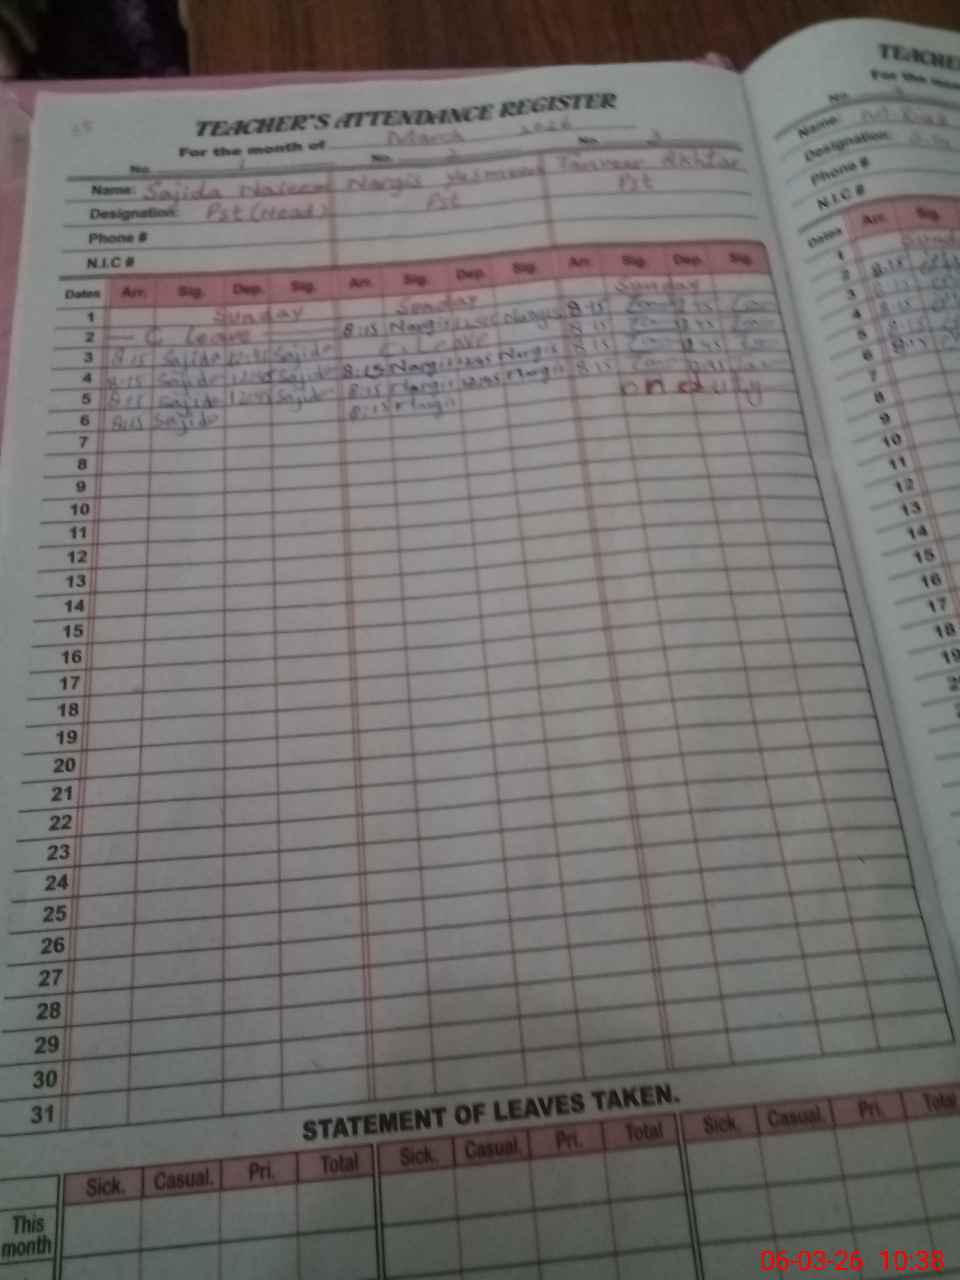 TEACHER'S ATTENDANCE REGISTER
For the month of March 2026
No. 1 No. 2 No. 3
Name: Sajida Naseem Nargis Yasmeen Tanveer Akhtar
Designation: Pst (Head) Pst Pst
Phone #
N.I.C #
Dates Arr. Sig. Dep. Sig. Arr. Sig. Dep. Sig. Arr. Sig. Dep. Sig.
1 Sunday Sunday Sunday
2 C. leave 8:15 Nargis Nargis 8:15
3 8:15 Sajida Sajida C. Leave 8:15
4 8:15 Sajida 12:45 Sajida 8:15 Nargis 12:45 Nargis 8:15
5 8:15 Sajida 12:45 Sajida 8:15 Nargis 12:45 Nargis 8:15
6 8:15 Sajida 8:15 Nargis on duty
7
8
9
10
11
12
13
14
15
16
17
18
19
20
21
22
23
24
25
26
27
28
29
30
31
STATEMENT OF LEAVES TAKEN.
Sick. Casual. Pri. Total Sick. Casual. Pri. Total Sick. Casual. Pri. Total
This month
TEACHE
For the mon
No.
Name:
Designation:
Phone #
N.I.C #
Dates Arr. Sig.
1
2 8:15
3 8:15
4 8:15
5 8:15
6 8:15
7
8
9
10
11
12
13
14
15
16
17
18
19
06-03-26 10:38